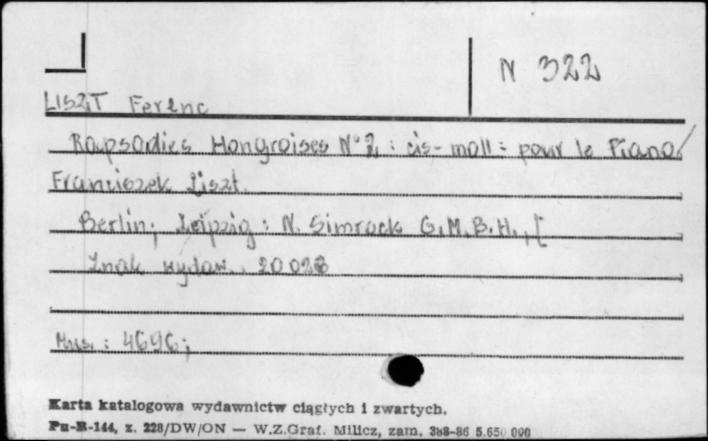 N 322
LISZT Ferenc
Rapsodies Hongroises N° 2 : cis-moll : pour le Piano /
Franciszek Liszt.
Berlin ; Leipzig : N. Simrock G.M.B.H., [
Znak wydaw. 20028
Mus. : 4696 ;
Karta katalogowa wydawnictw ciągłych i zwartych.
Pu-B-144, z. 228/DW/ON — W.Z.Graf. Milicz, zam. 388-86 5.650 000